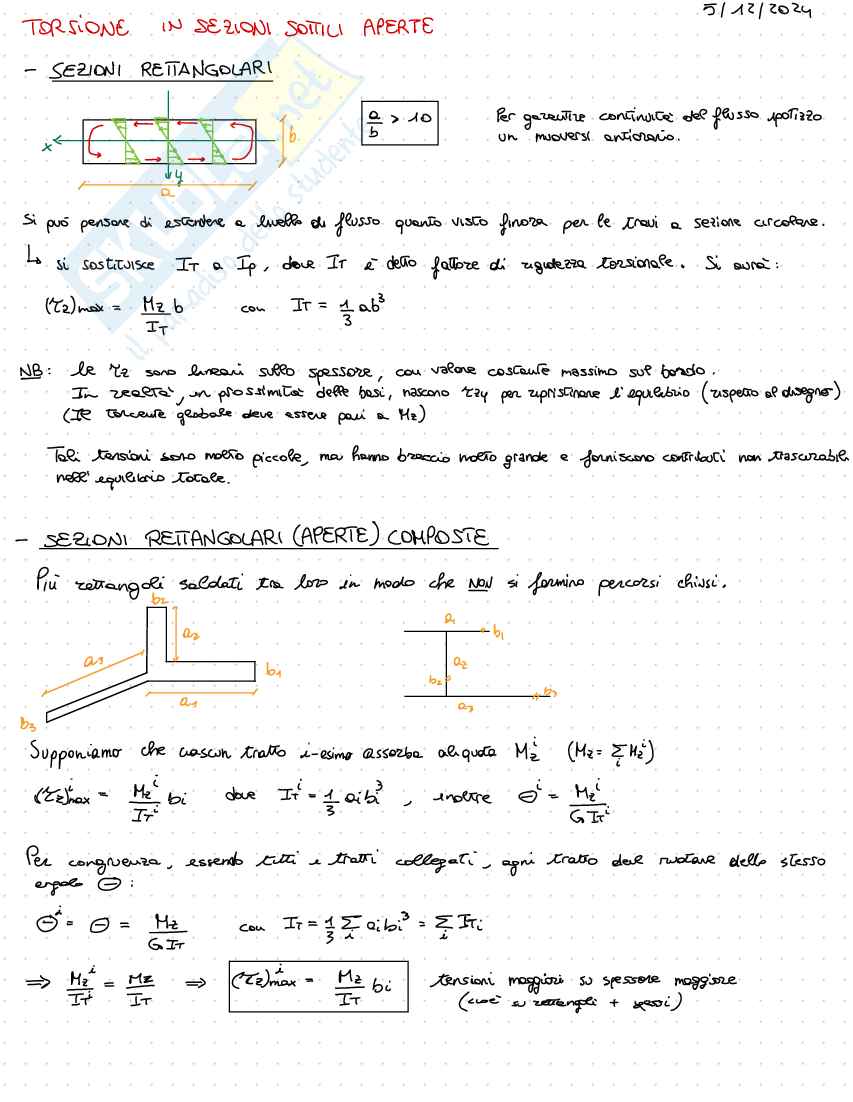 5/12/2024
TORSIONE IN SEZIONI SOTTILI APERTE
- SEZIONI RETTANGOLARI
a/b > 10
Per garantire continuità del flusso ipotizzo
un muoversi antiorario.
x
y
b
a
Si può pensare di estendere a livello di flusso quanto visto finora per le travi a sezione circolare.
↳ si sostituisce I_T a I_p, dove I_T è detto fattore di rigidezza torsionale. Si avrà:
(τz)max = Mz/I_T b con I_T = 1/3 ab³
NB: le τz sono lineari sullo spessore, con valore costante massimo sul bordo.
In realtà, in prossimità delle basi, nascono τzy per ripristinare l'equilibrio (rispetto al disegno)
(Il torcente globale deve essere pari a Mz)
Tali tensioni sono molto piccole, ma hanno braccio molto grande e forniscono contributi non trascurabili
nell'equilibrio totale.
- SEZIONI RETTANGOLARI (APERTE) COMPOSTE
Più rettangoli saldati tra loro in modo che NON si formino percorsi chiusi.
b2
a2
a3
b1
a1
b3
a1
b1
a2
b2
b3
a3
Supponiamo che ciascun tratto i-esimo assorba aliquota Mz^i (Mz = Σ_i Mz^i)
(τz)^i max = Mz^i/I_T^i bi dove I_T^i = 1/3 ai bi³, inoltre Θ^i = Mz^i/(G I_T^i)
Per congruenza, essendo tutti i tratti collegati, ogni tratto deve ruotare dello stesso
angolo Θ:
Θ^i = Θ = Mz/(G I_T) con I_T = 1/3 Σ_i ai bi³ = Σ_i I_Ti
⇒ Mz^i/I_T^i = Mz/I_T ⇒ (τz)^i max = Mz/I_T bi tensioni maggiori su spessore maggiore
(cioè su rettangoli + spessi)
SKUOLA.net
il paradiso dello studente